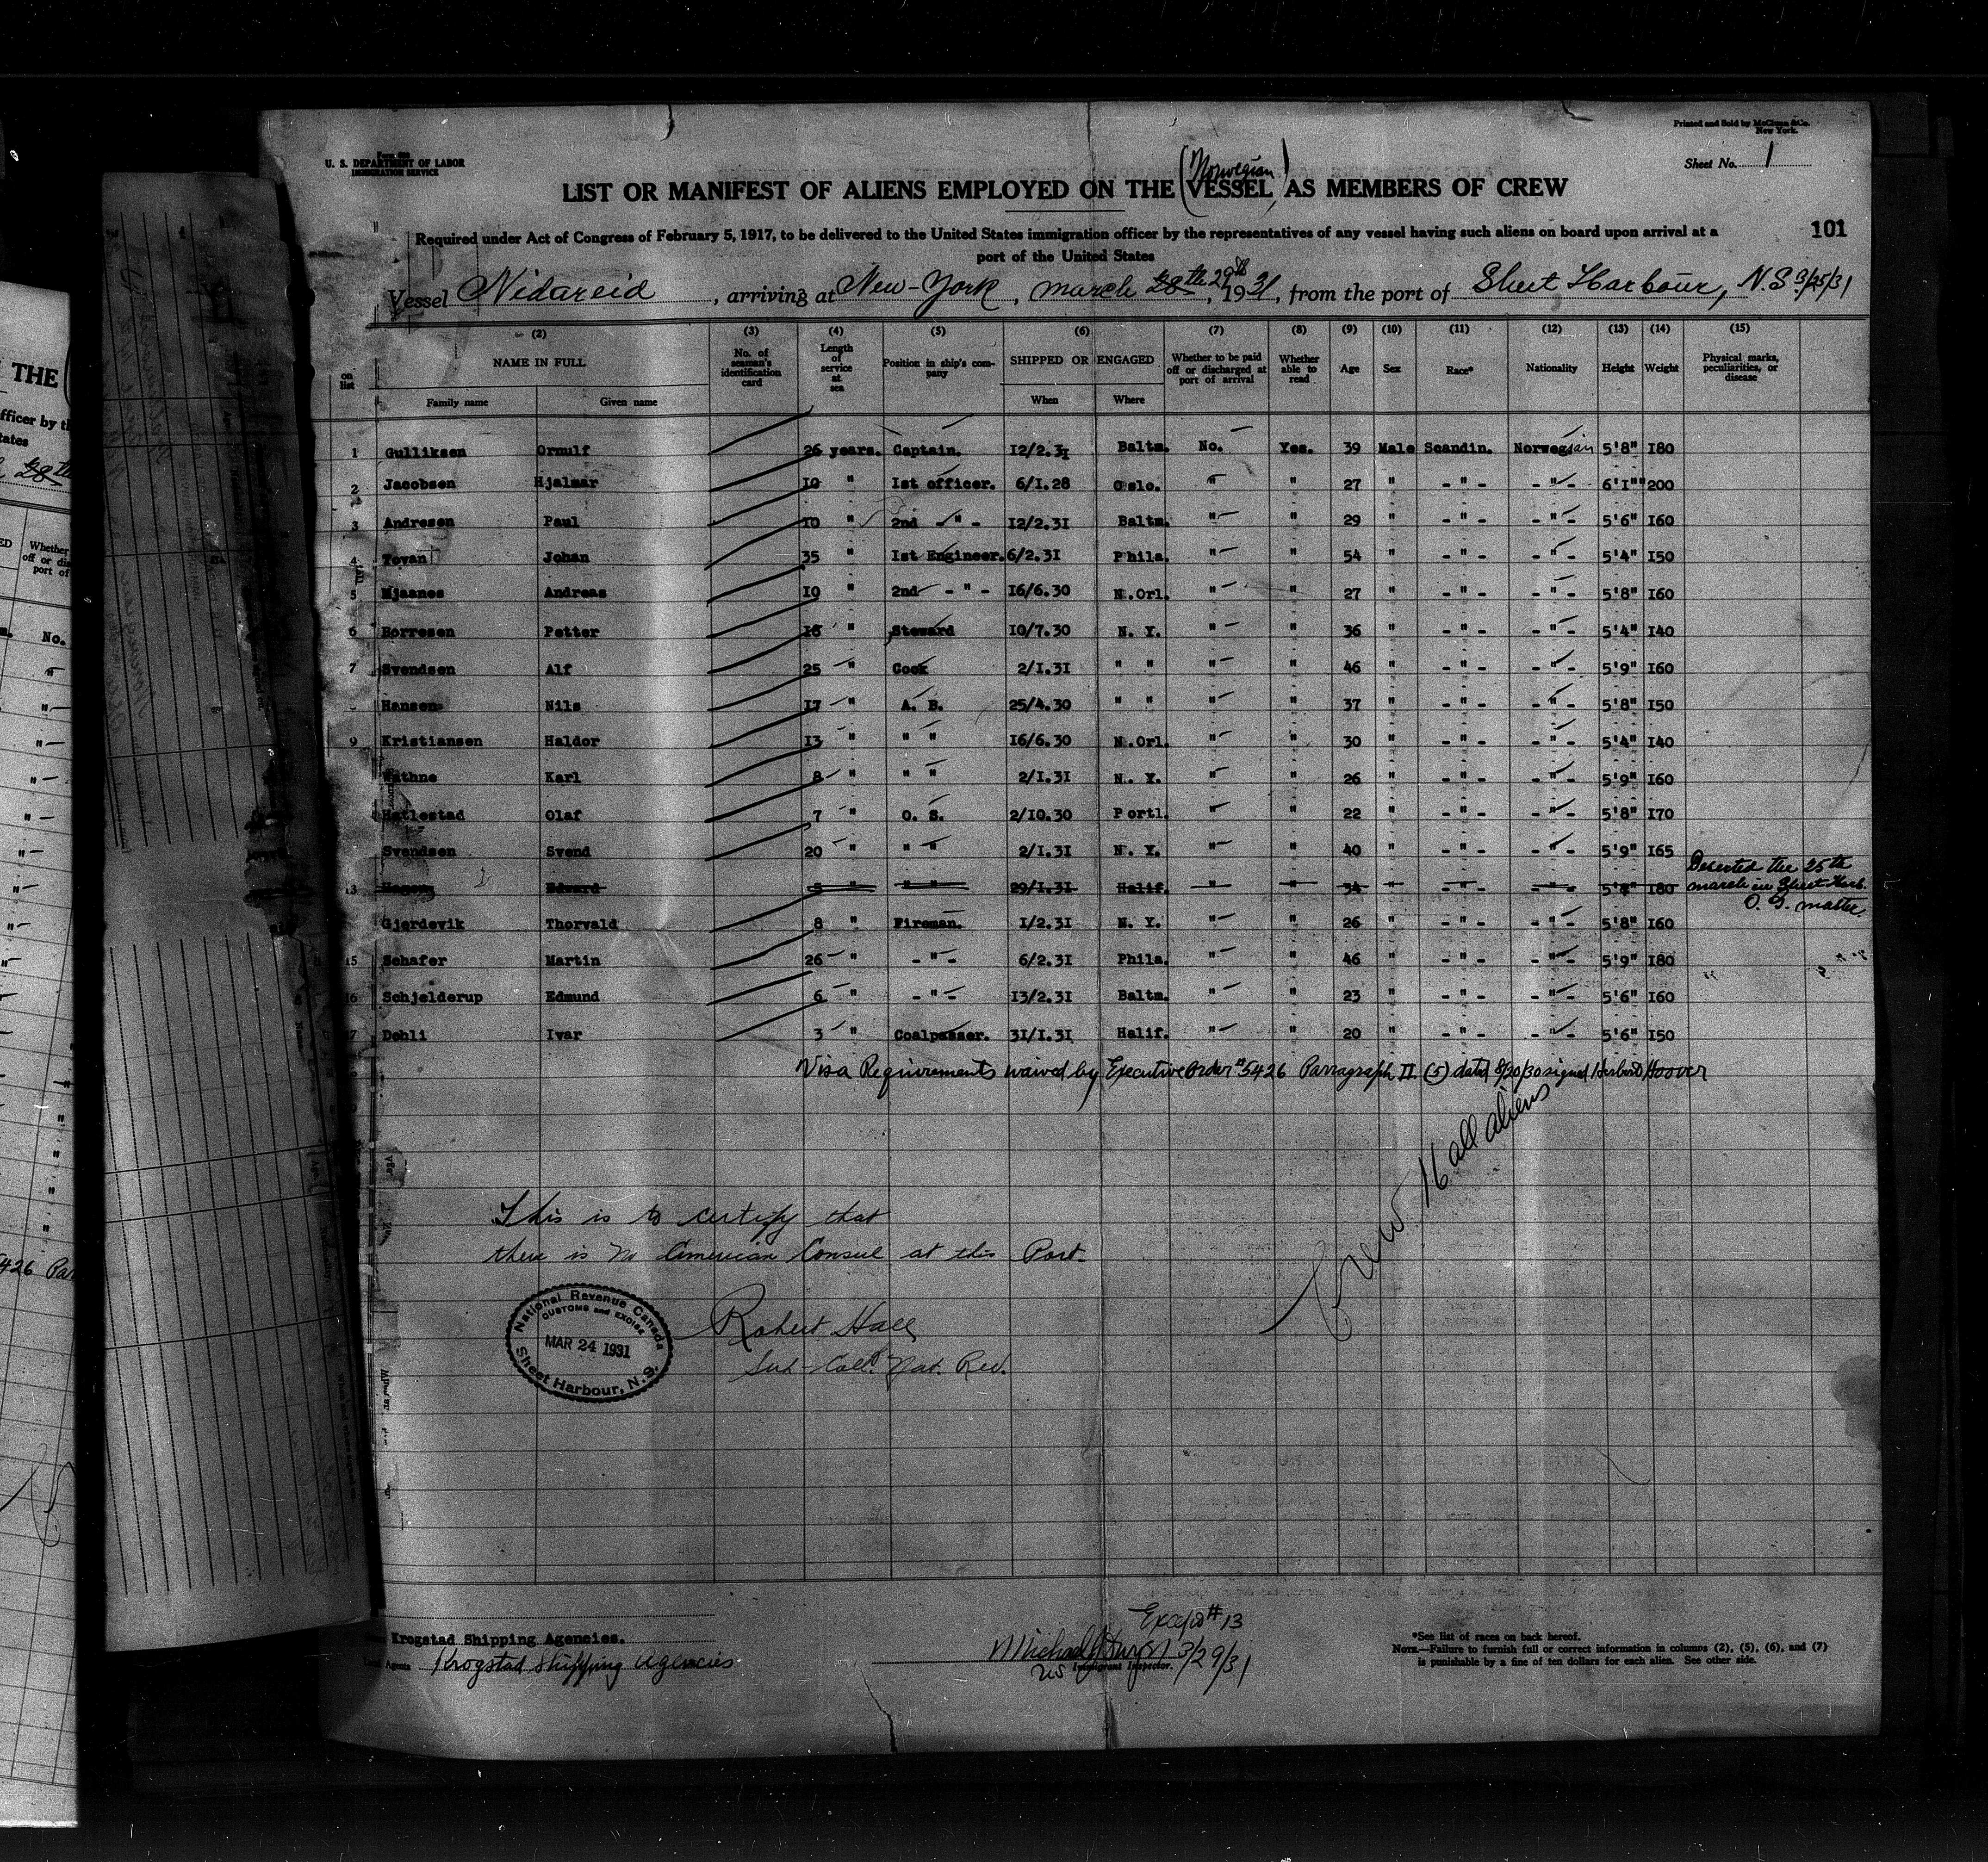 Printed and Sold by McClunn & Co.
New York.
Form 680
U. S. DEPARTMENT OF LABOR
IMMIGRATION SERVICE
Sheet No. 1
(Norwegian)
LIST OR MANIFEST OF ALIENS EMPLOYED ON THE VESSEL AS MEMBERS OF CREW
101
Required under Act of Congress of February 5, 1917, to be delivered to the United States immigration officer by the representatives of any vessel having such aliens on board upon arrival at a
port of the United States
Vessel Nidareid, arriving at New-York, march 28th 29th, 1931, from the port of Sheet Harbour, N.S 3/25/31
(2) (3) (4) (5) (6) (7) (8) (9) (10) (11) (12) (13) (14) (15)
on list NAME IN FULL No. of seaman's identification card Length of service at sea Position in ship's company SHIPPED OR ENGAGED Whether to be paid off or discharged at port of arrival Whether able to read Age Sex Race* Nationality Height Weight Physical marks, peculiarities, or disease
Family name Given name When Where
1 Gulliksen Ornulf 26 years. Captain. 12/2.31 Baltm. No. Yes. 39 Male Scandin. Norwegian 5'8" 180
2 Jacobsen Hjalmar 10 " 1st officer. 6/1.28 Oslo. " " 27 " - " - - " - 6'1"" 200
3 Andresen Paul 10 " 2nd - " - 12/2.31 Baltm. " " 29 " - " - - " - 5'6" 160
4 Tovan Johan 35 " 1st Engineer. 6/2.31 Phila. " " 54 " - " - - " - 5'4" 150
5 Mjaanes Andreas 10 " 2nd - " - 16/6.30 N.Orl. " " 27 " - " - - " - 5'8" 160
6 Borresen Petter 16 " Steward 10/7.30 N. Y. " " 36 " - " - - " - 5'4" 140
7 Svendsen Alf 25 " Cook 2/1.31 " " " " 46 " - " - - " - 5'9" 160
Hansen Nils 17 " A. B. 25/4.30 " " " " 37 " - " - - " - 5'8" 150
9 Kristiansen Haldor 13 " " " 16/6.30 N.Orl. " " 30 " - " - - " - 5'4" 140
Wathne Karl 8 " " " 2/1.31 N. Y. " " 26 " - " - - " - 5'9" 160
Hatlestad Olaf 7 " O. S. 2/10.30 Portl. " " 22 " - " - - " - 5'8" 170
Svendsen Svend 20 " " " 2/1.31 N. Y. " " 40 " - " - - " - 5'9" 165
13 Hagen Edvard 5 " " " 29/1.31 Halif. " " 34 " - " - - " - 5'8" 180 Deserted the 25th
march in Sheet Harb.
O. G. master.
Gjerdevik Thorvald 8 " Fireman. 1/2.31 N. Y. " " 26 " - " - - " - 5'8" 160
15 Schafer Martin 26 " - " - 6/2.31 Phila. " " 46 " - " - - " - 5'9" 180
16 Schjelderup Edmund 6 " - " - 13/2.31 Baltm. " " 23 " - " - - " - 5'6" 160
17 Dehli Ivar 3 " Coalpasser. 31/1.31 Halif. " " 20 " - " - - " - 5'6" 150
Visa Requirements waived by Executive Order #5426 Parragraph II (5) dated 8/30/30 signed Herbert Hoover
Crew 16 all aliens
This is to certify that
there is no American Consul at this Port.
National Revenue Canada
CUSTOMS and EXCISE
MAR 24 1931
Sheet Harbour, N.S.
Robert Hall
Sub-Coll. Nat. Rev.
Except #13
Krogstad Shipping Agencies.
Agents Krogstad Shipping Agencies
3/29/31
US Immigrant Inspector.
*See list of races on back hereof.
NOTE.—Failure to furnish full or correct information in columns (2), (5), (6), and (7)
is punishable by a fine of ten dollars for each alien. See other side.